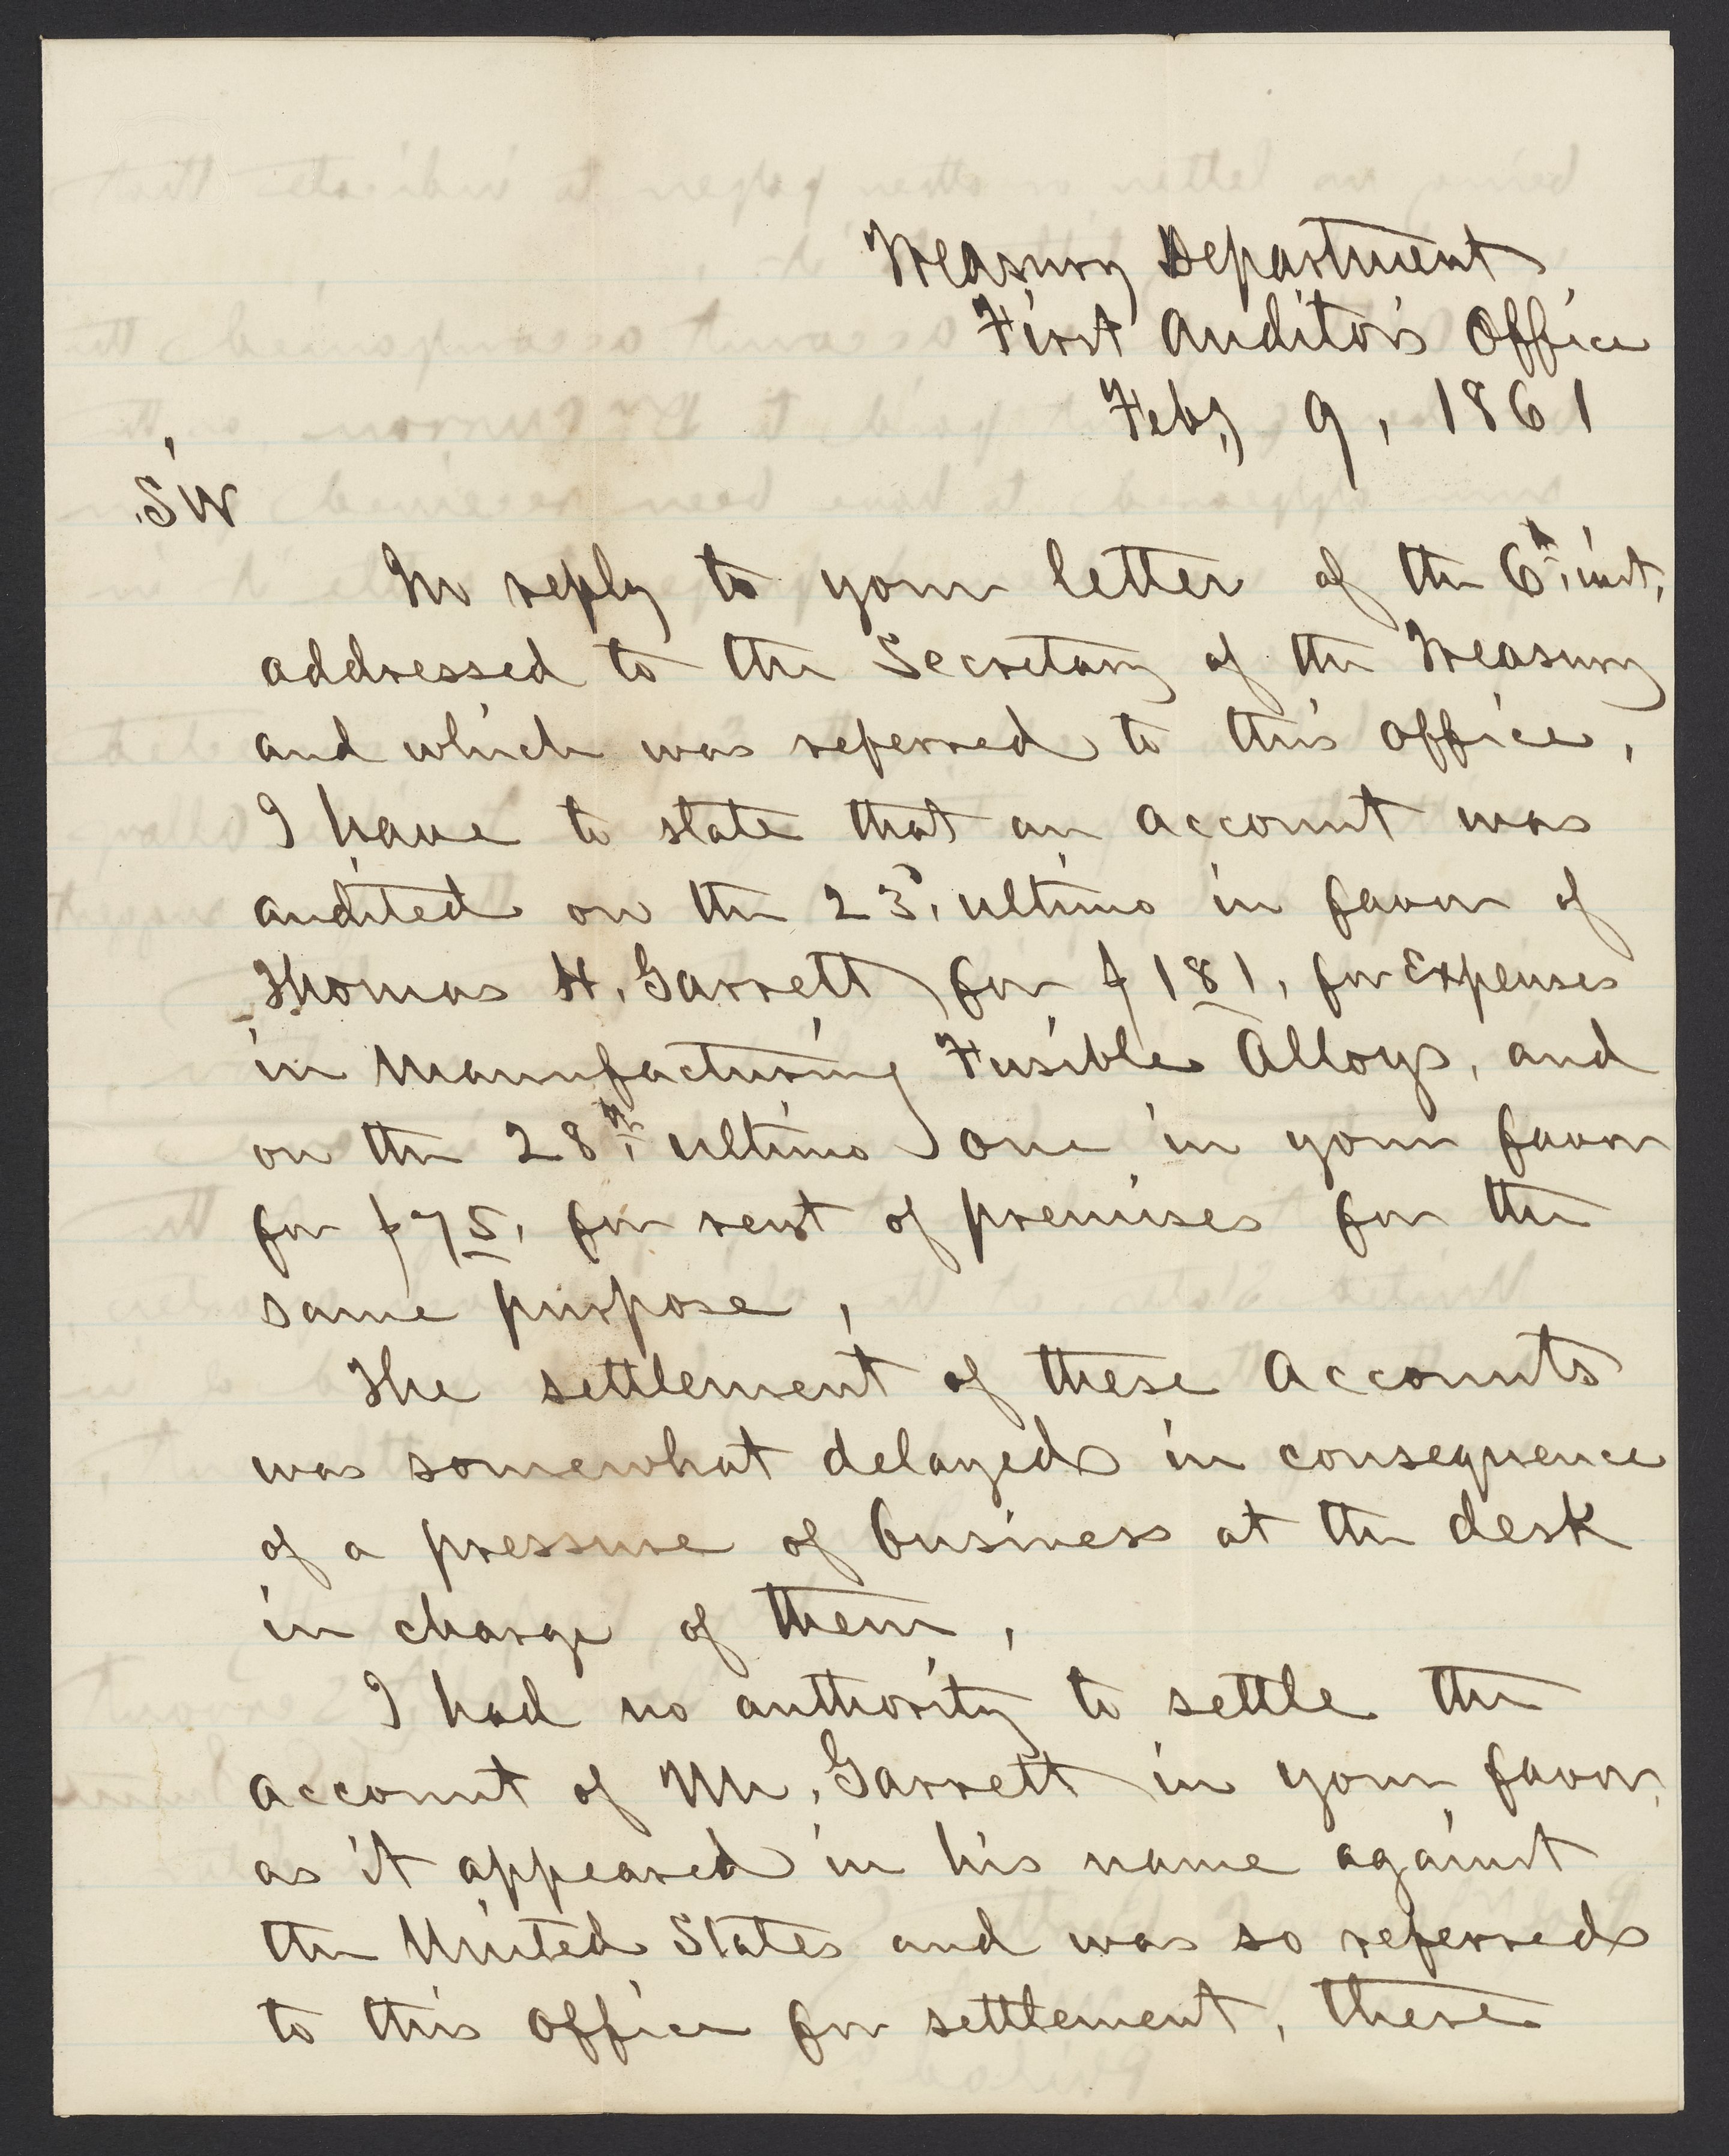 Treasury Department
First Auditor's Office
Feby, 9, 1861
Sir
In reply to your letter of the 6th, inst,
addressed to the Secretary of the Treasury
and which was referred to this office,
I have to state that an account was
audited on the 23d, ultimo in favor of
Thomas H. Garrett for $181, for Expenses
in Manufacturing Fusible Alloys, and
on the 28th, ultimo one in your favor
for $75, for rent of premises for the
same purpose,
The settlement of these Accounts
was somewhat delayed in consequence
of a pressure of business at the desk
in charge of them,
I had no authority to settle the
account of Mr. Garrett in your favor,
as it appeared in his name against
the United States and was so referred
to this office for settlement, there